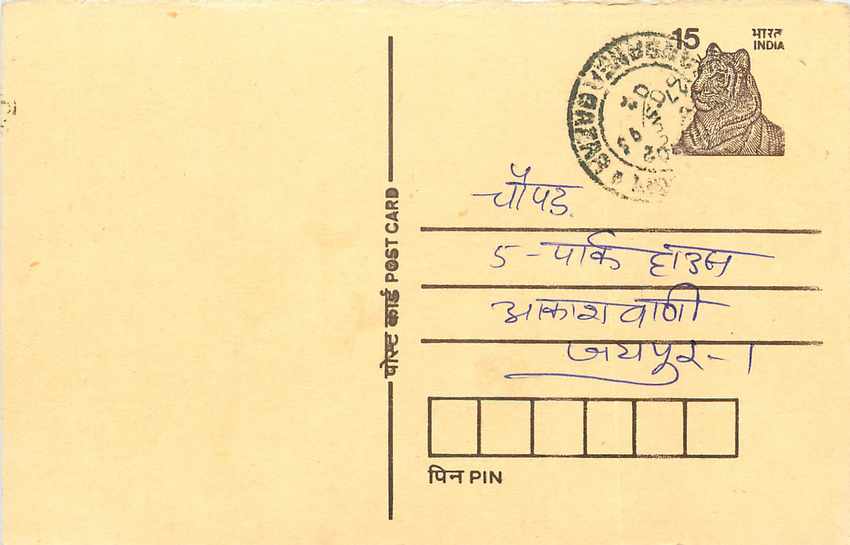 15
भारत
INDIA
चौपड़
5-पार्क हाउस
आकाशवाणी
जयपुर-1
पोस्ट कार्ड POST CARD
पिन PIN